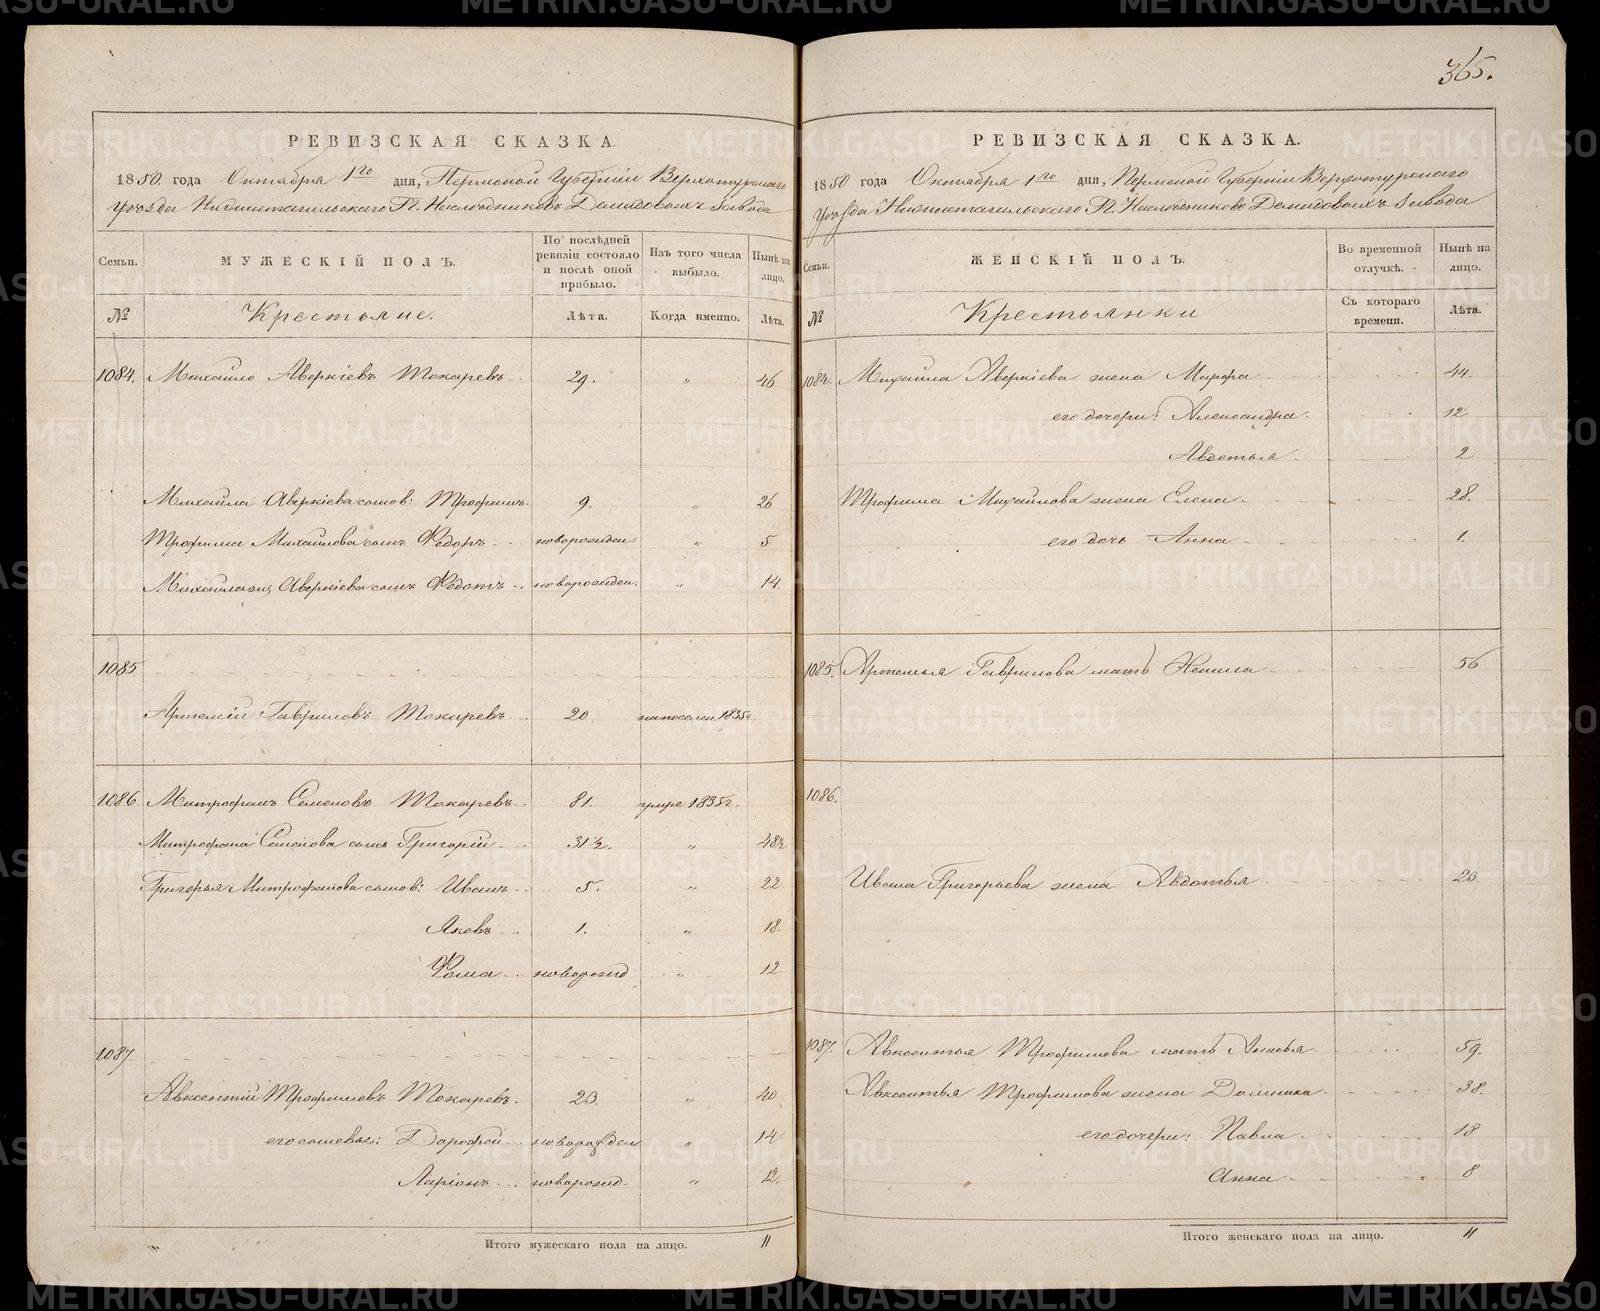 365.
РЕВИЗСКАЯ СКАЗКА.
1850 года Октября 1го дня, Пермской Губерніи Верхотурскаго
Уѣзда Нижнетагильскаго Г.г. Наслѣдниковъ Демидовыхъ Завода
Семьи. МУЖЕСКІЙ ПОЛЪ. По послѣдней ревизіи состояло и послѣ оной прибыло. Изъ того числа выбыло. Нынѣ на лицо.
№ Крестьяне. Лѣта. Когда именно. Лѣта.
1084. Михайло Аверкіевъ Токаревъ 29. " 46
Михайла Аверкіева сынов: Трофимъ 9. " 26
Трофима Михайлова сынъ Федоръ новорожден. " 5
Михайла Аверкіева сынъ Федотъ новорожден. " 14.
1085
Артемій Гавриловъ Токаревъ 20 на поселен. 1835г.
1086. Митрофанъ Семеновъ Токаревъ 81. умре 1835г.
Митрофана Семенова сынъ Григорій 31½. " 48½
Григорья Митрофанова сынов: Иванъ 5. " 22
Яковъ 1. " 18.
Фома новорожд " 12
1087.
Авксентій Трофимовъ Токаревъ. 23. " 40
его сыновья: Дорофей новорожден " 14
Ларіонъ новорожд. " 12.
Итого мужескаго пола на лицо. 11
РЕВИЗСКАЯ СКАЗКА.
1850 года Октября 1го дня, Пермской Губерніи Верхотурскаго
Уѣзда Нижнетагильскаго Г.г. Наслѣдниковъ Демидовыхъ Завода
Семьи. ЖЕНСКІЙ ПОЛЪ. Во временной отлучкѣ. Нынѣ на лицо.
№ Крестьянки Съ котораго времени. Лѣта.
1084. Михайла Аверкіева жена Марфа 44.
его дочери: Александра 12
Авдотья 2
Трофима Михайлова жена Елена 28.
его дочь Анна 1.
1085. Артемья Гаврилова мать 56
1086.
Ивана Григорьева жена Авдотья 23.
1087. Авксентья Трофимова мать 59.
Авксентья Трофимова жена Домника 38.
его дочери: Павла 18
Анна 8
Итого женскаго пола на лицо. 11
METRIKI.GASO-URAL.RU